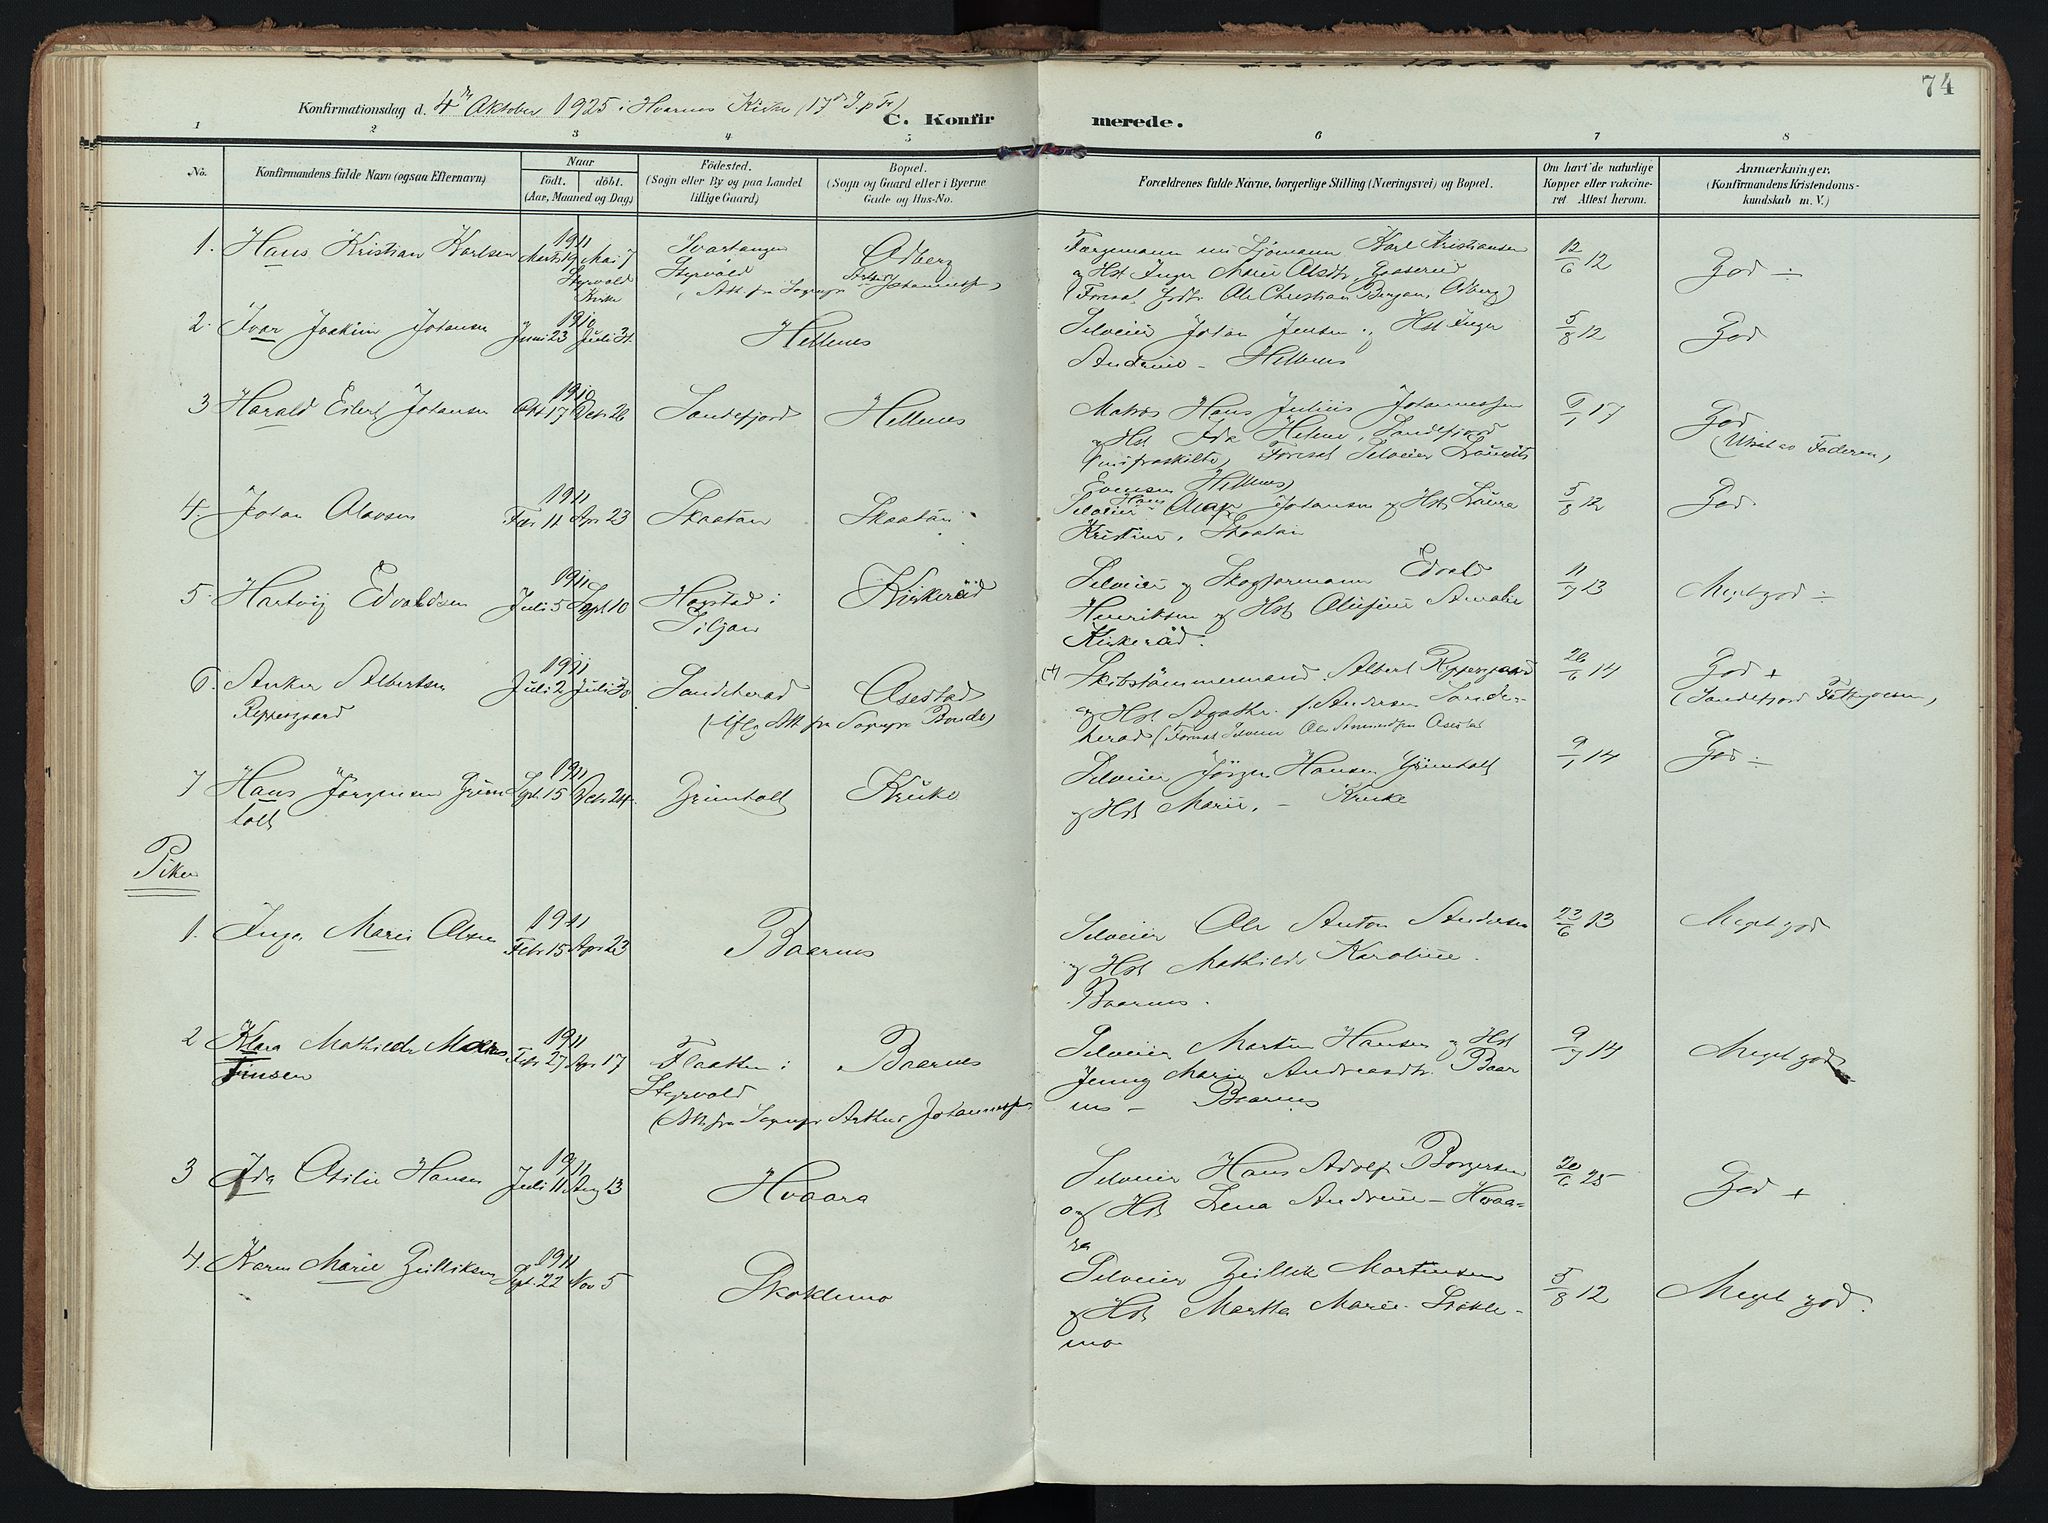 74
Konfirmationsdag d. 4de Oktober 1925 i Hvarnes Kirke (17de S. p. Tr.)
C. Konfirmerede.
1 2 3 4 5 6 7 8
No.
Konfirmandens fulde Navn (ogsaa Efternavn)
Naar
födt. döbt.
(Aar, Maaned og Dag)
Födested.
(Sogn eller By og paa Landet
tillige Gaard)
Bopæl.
(Sogn og Gaard eller i Byerne
Gade og Hus-No.
Forældrenes fulde Navne, borgerlige Stilling (Næringsvei) og Bopæl.
Om havt de naturlige
Kopper eller vakcine-
ret Attest herom.
Anmærkninger.
(Konfirmandens Kristendoms-
kundskab m. V.)
1. Hans Kristian Karlsen 1911 Marts 19 Mai 7 Styrvold Kirke
Svartangen Styrvold Odberg
(Att. fra Sognepr Arthur Johannessen)
Sjømann Karl Kristiansen
og Hst Inger Marie Olsdtr Gasserud
(Foresat Ole Christian Bergan, Odberg)
12/6 12 God ÷
2. Ivar Joakim Johansen 1910 Juni 23 Juli 31
Hellenes
Selveier Johan Jensen og Hst Inger
Andrine - Hellenes
5/8 12 God
3 Harald Eilert Johansen 1910 Okt 17 Dec 26
Sandefjord Hellenes
Matros Hans Julius Johannessen
og Hst Ida Helene, Sandefjord
Foresat Selveier Lauritz
Evensen Hellenes)
9/1 17 God
4. Johan Olavsen 1911 Feb 11 Apr 23
Skaatan Skaatan
Selveier Hans Olaf Johansen og Hst Laura
Kristine, Skaatan
5/8 12 God.
5. Hartvig Edvaldsen 1911 Juli 5 Sept 10
Hogstad i
Siljan
Kirkeröd
Selveier og Skogformann Edvald
Henriksen og Hst Olufine Amalie
Kirkeröd.
11/7 13 Meget god ÷
6. Anker Albertsen
Reppesgaard
1911 Juli 2 Juli 30
Sandeherad Aasestad
(iflg Att. fra Sognepr Bonde)
(+) Skibstömmermand Albert Reppesgaard
og Hst Agathe f. Andersen Sande-
herad (Foresat Selveier Ole Amundsen Aasestad
26/6 14 God +
7 Hans Jörgensen Grim
holt
1911 Sept. 15 Oct 24.
Grimholt Kruke
Selveier Jörgen Hansen Grimholt
og Hst Marie, - Kruke
9/1 14 God ÷
Piker
1. Inga Marie Olsen 1911 Febr 15 Apr 23
Baarnes
Selveier Ole Anton Andersen
og Hst Mathilde Karoline.
Baarnes.
23/6 13 Meget god
2 Klara Mathilde Martinsen 1911 Feb 27 Apr 17
Flaatten i
Styrvold
Baarnes
(Att. fra Sognepr Arthur Johannessen
Selveier Martin Hansen og Hst
Jenny Marie Andreasdtr. Baar
nes - Baarnes
9/7 14 Meget god
3 Ida Otilie Hansen 1911 Juli 11 Aug 13
Hvaara
Selveier Hans Adolf Borgersen
og Hst Lena Andrine - Hvaa-
ra
20/6 25 God +
4. Karen Marie Gulliksen 1911 Sept. 22 Nov 5
Skoklemo
Selveier Gullik Martinsen
og Hst Martha Marie. Skokle-
mo
5/8 12 Meget god.